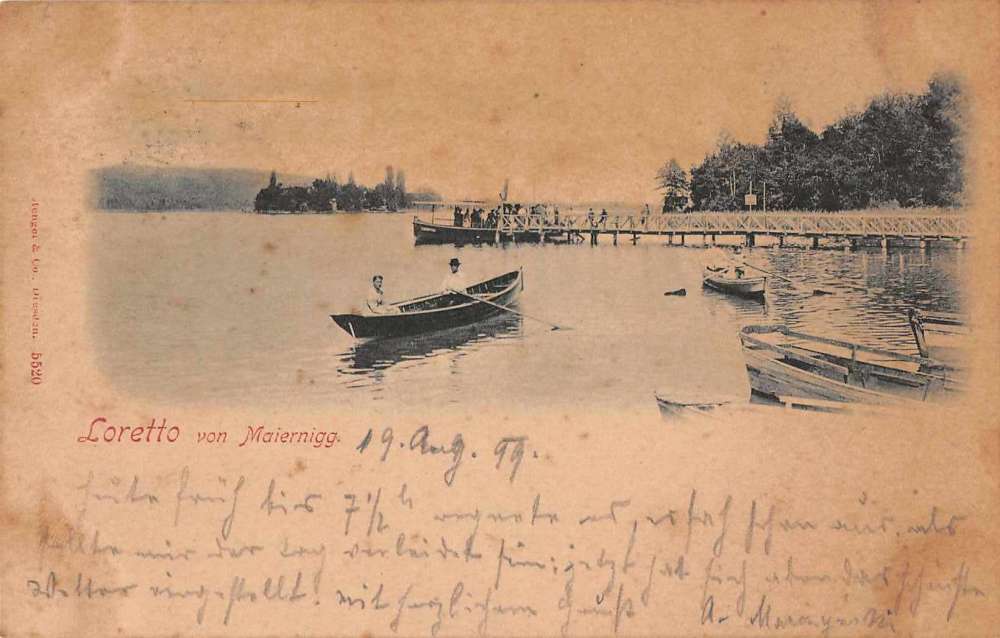 Stengel & Co., Dresden. 5520
Loretto von Maiernigg. 19. Aug. 99.
Heute früh bis 7 1/2 h regnete es, es sah schon aus, als
sollte mir der Tag verleidet sein; jetzt hat sich aber das schönste
Wetter eingestellt. Mit herzlichem Gruß A.